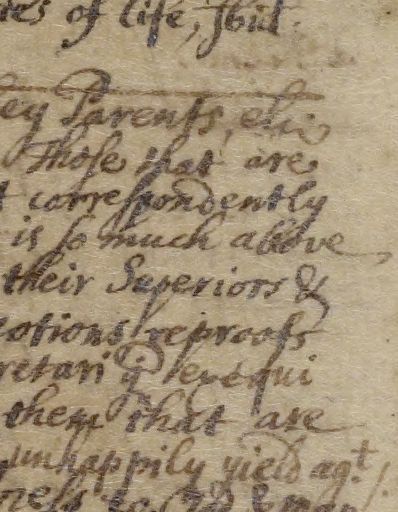 of life, but
ey Parents, etc
Those that are
correspondently
is so much above
their Superiors &
otions reproofs
retari qm exequi
them that are
unhappily yield agt